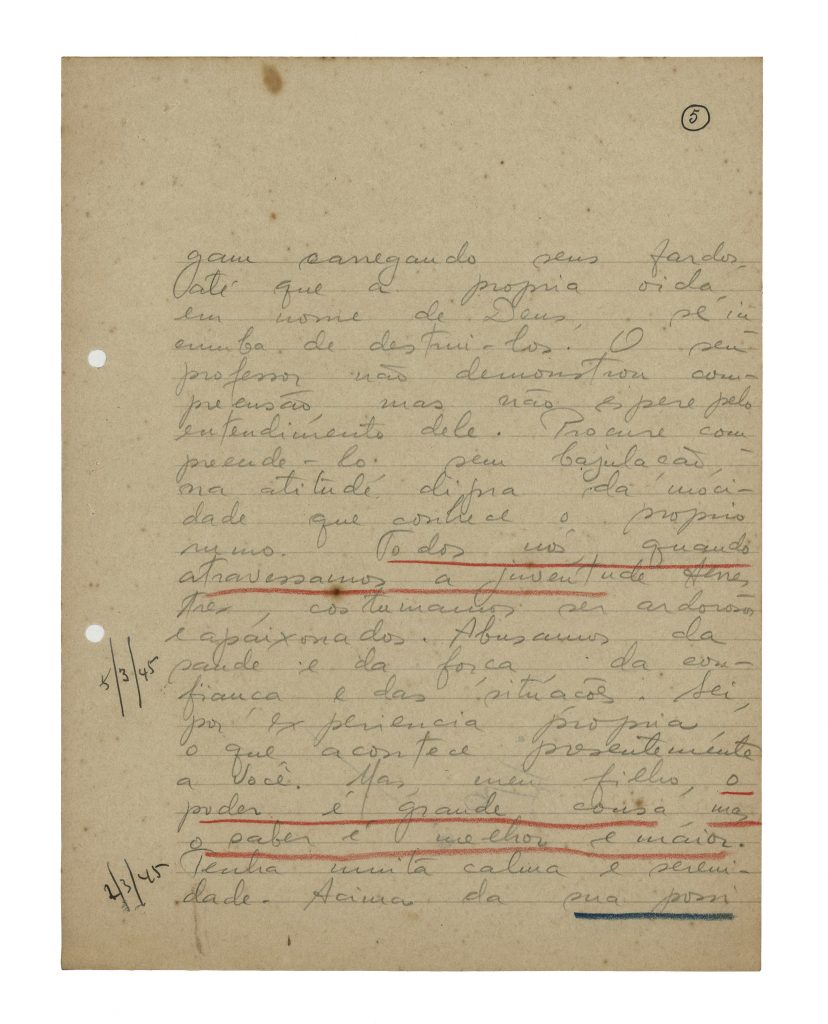 5
gam carregando seus fardos,
até que a propria vida,
em nome de Deus, se in
cumba de destrui-los. O seu
professor não demonstrou com-
preensão, mas não espere pelo
entendimento dele. Procure com
preende-lo sem bajulação,
na atitude digna da moci-
dade que conhece o proprio
rumo. Todos nós, quando
atravessamos a juventude terres
tre, costumamos ser ardorosos
e apaixonados. Abusamos da
saude e da força da con-
fiança e das situações. Sei,
por experiencia propria,
o que acontece presentemente
a Você. Mas, meu filho, o
poder é grande cousa, mas
o saber é melhor e maior.
Tenha muita calma e sereni-
dade. Acima da sua possi
5/3/45
2/3/45